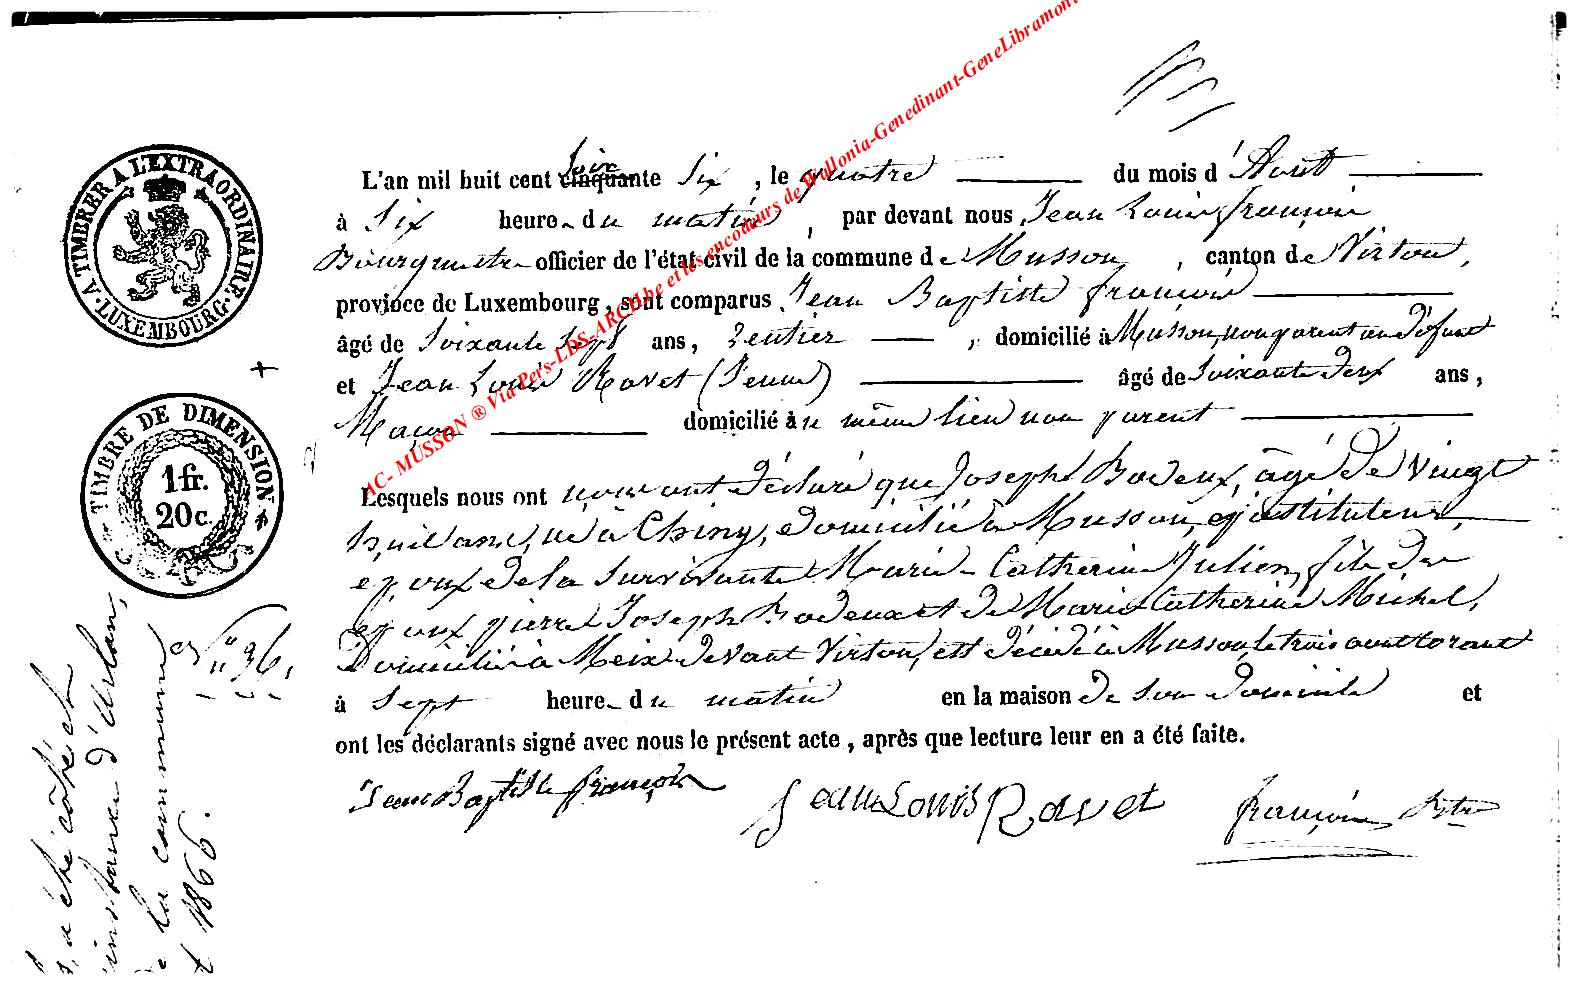 A TIMBRER A L'EXTRAORDINAIRE
LUXEMBOURG
TIMBRE DE DIMENSION
1 fr.
20 c.
N° 36.
L'an mil huit cent cinquante Soixante Six, le quatre du mois d'Août
à Six heure du matin, par devant nous Jean Louis françois
Bourgmestre officier de l'état-civil de la commune de Musson, canton de Virton,
province de Luxembourg, sont comparus Jean Baptiste françois
âgé de Soixante Sept ans, Rentier, domicilié à Musson, non parent au défunt
et Jean Louis Ravet (Jeune) âgé de Soixante deux ans,
Maçon domicilié au même lieu non parent
Lesquels nous ont nous ont déclaré que Joseph Bodeux, âgé de Vingt
huit ans, né à Chiny, domicilié à Musson, instituteur,
époux de la Survivante Marie Catherine Julien, fils des
époux pierre Joseph Bodeux et de Marie Catherine Michel,
Domiciliés à Meix devant Virton, est décédé à Musson, le trois aout corant
à Sept heure du matin en la maison de Son domicile et
ont les déclarants signé avec nous le présent acte, après que lecture leur en a été faite.
Jean Baptiste françois Jean Louis Ravet françois Btre
a été coté et
instance d'Arlon,
la commune
1866.
AC- MUSSON ® Via Pers-LDS-ARCH.be et les encodeurs de Wallonia-Genedinant-GeneLibramont